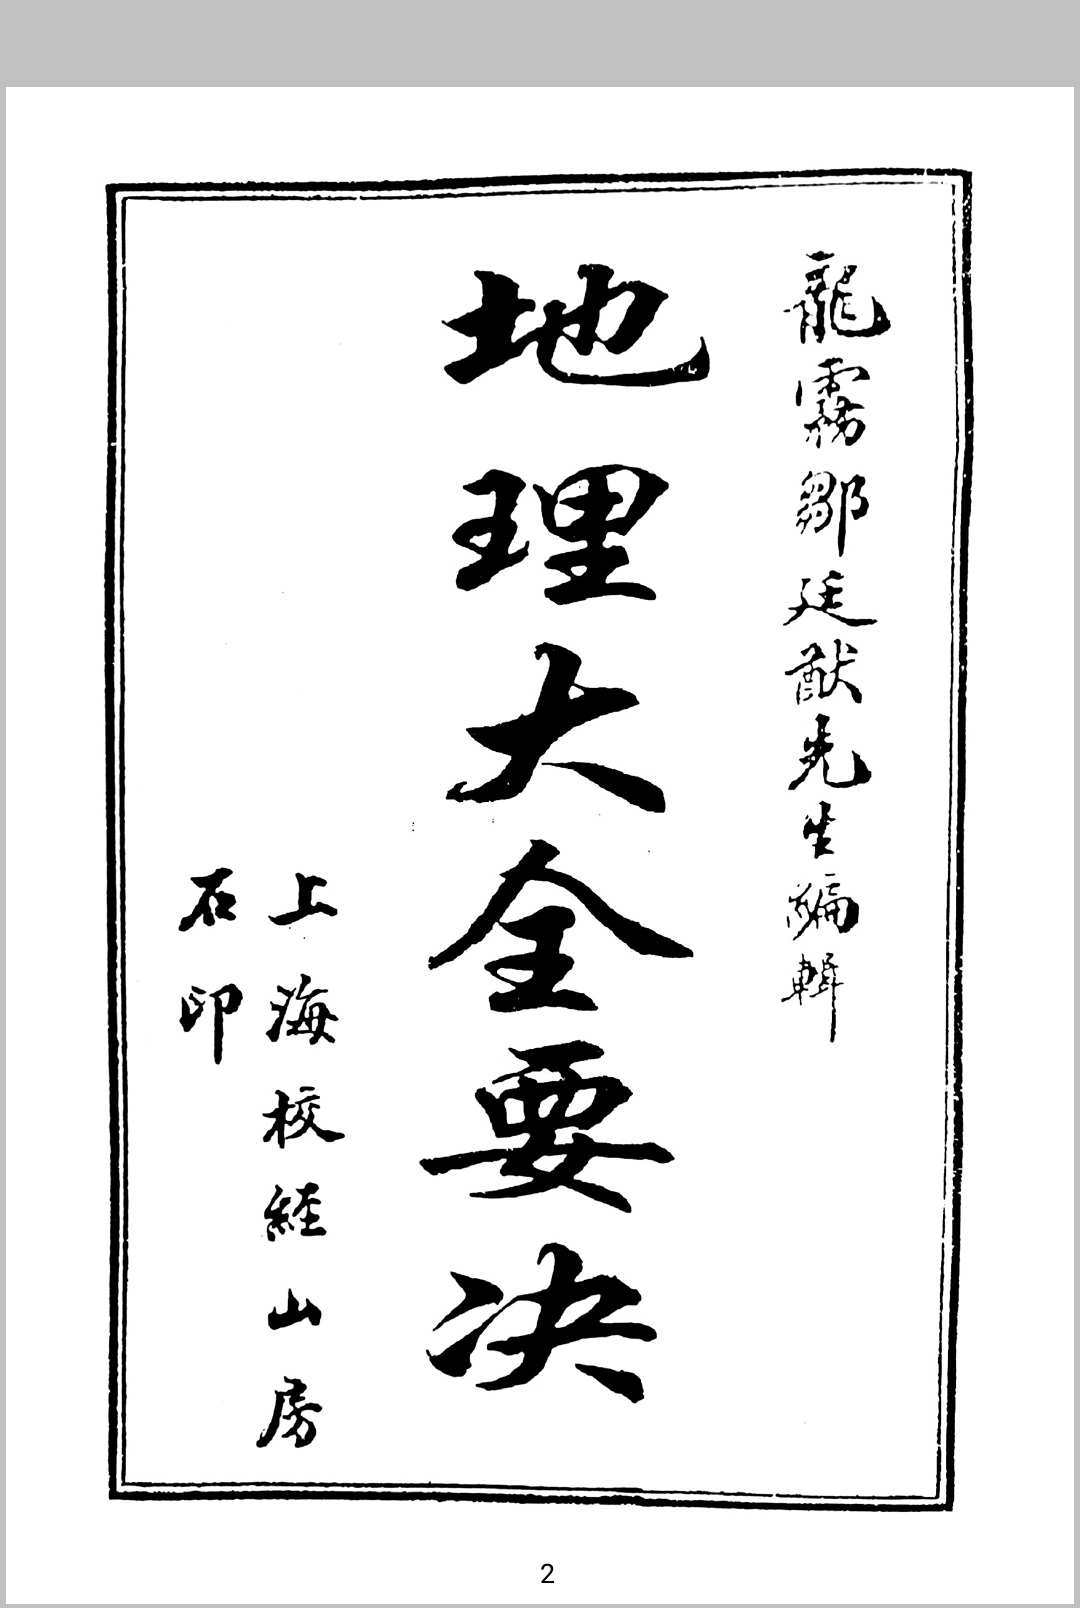 龍霧鄒廷猷先生編輯
地理大全要决
上海校經山房
石印
2